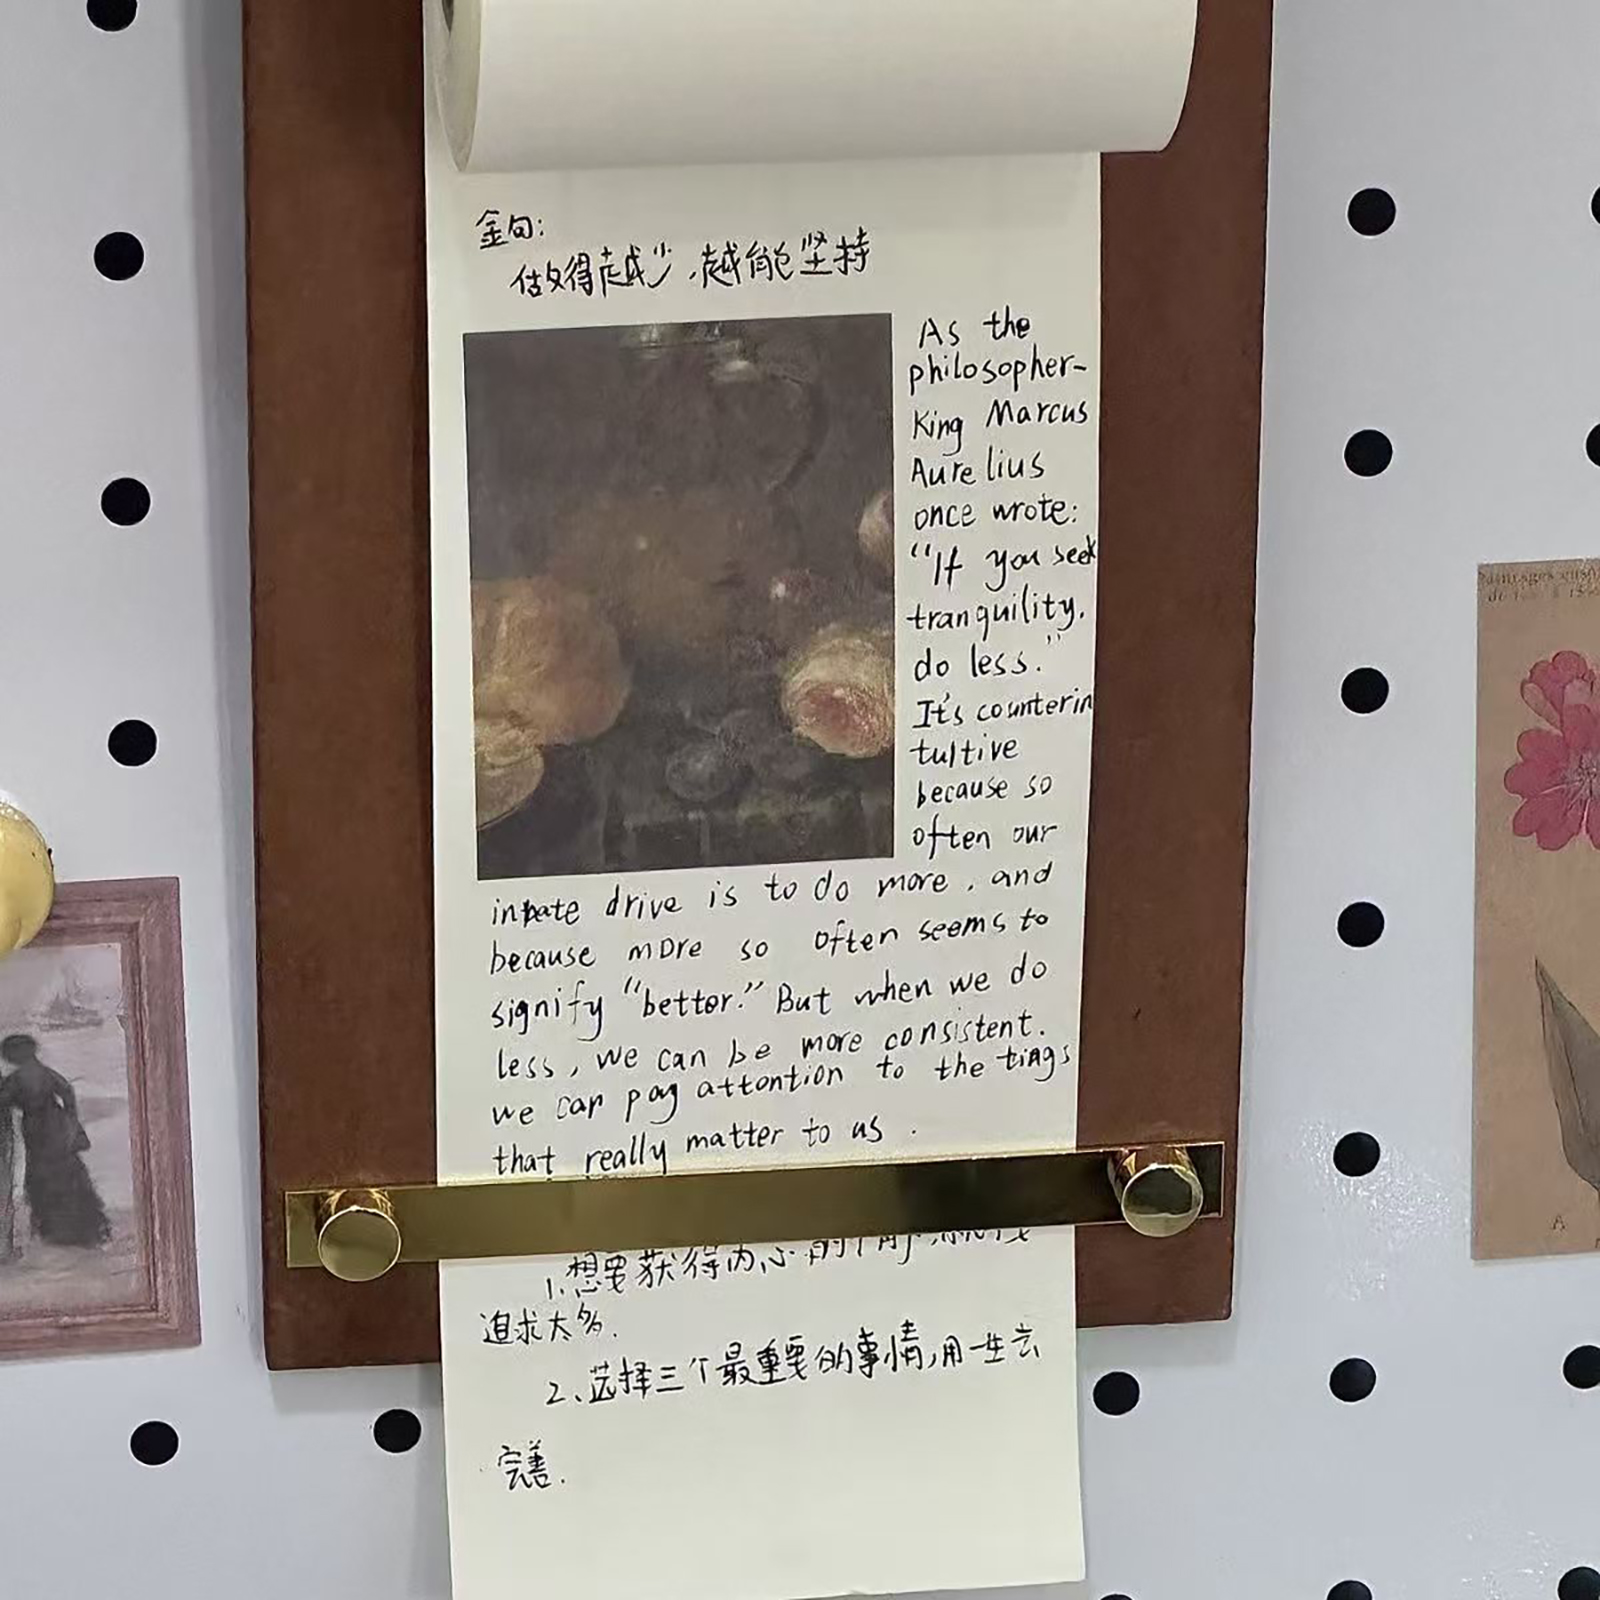 金句:
做得越少,越能坚持
As the
philosopher-
King Marcus
Aurelius
once wrote:
“If you seek
tranquility.
do less.”
It's counterin
tuitive
because so
often our
innate drive is to do more, and
because more so often seems to
signify “better.” But when we do
less, we can be more consistent.
we can pay attention to the tings
that really matter to us.
1.想要获得内心的
追求太多.
2、选择三个最重要的事情,用一生去
完善.
A